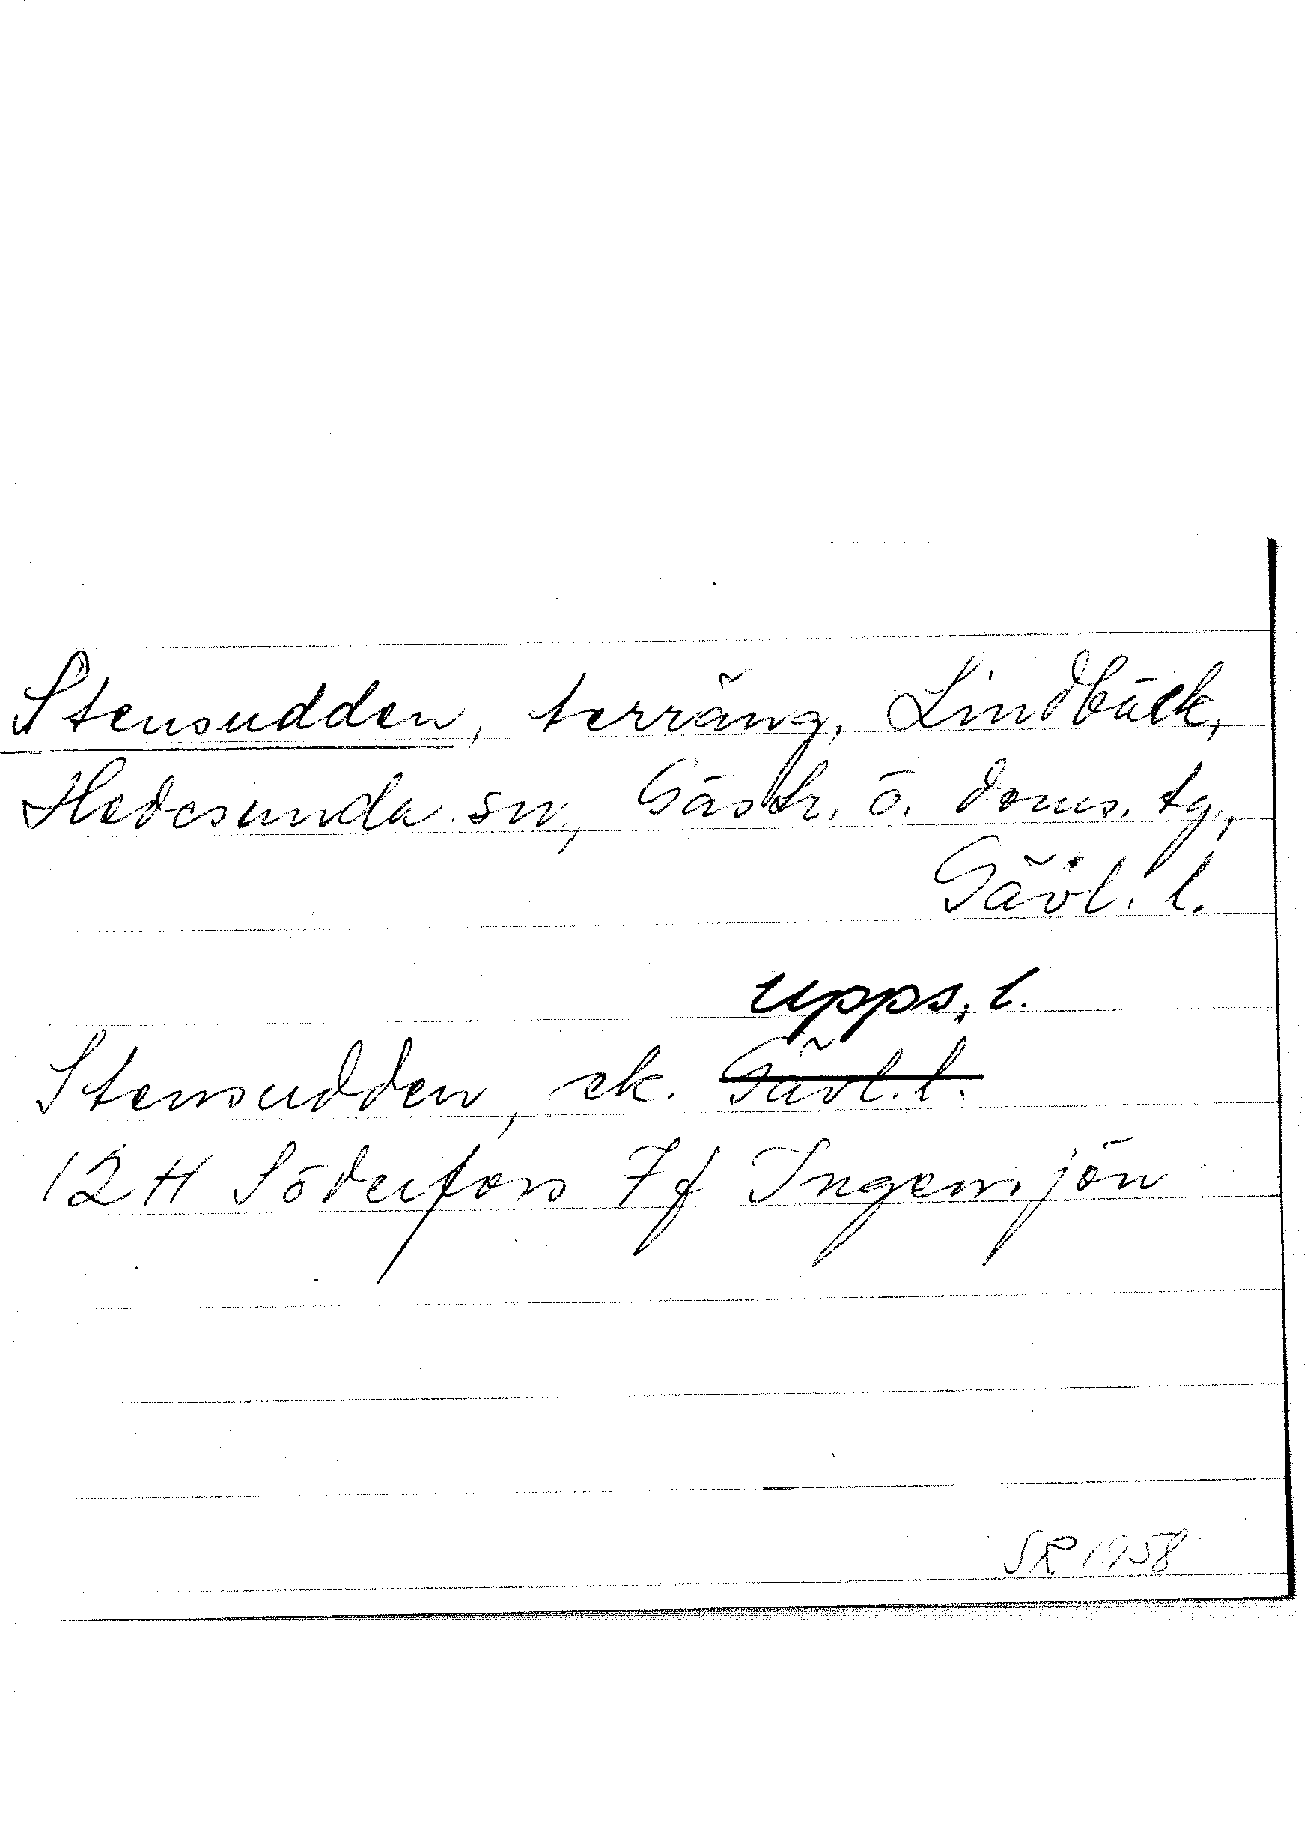 Stensudden, terräng, Lindbäck,
Hedesunda sn, Gästr. ö. doms. tg,
Gävl. l.
Upps. l.
Stensudden, ek. Gävl. l.
12 H Söderfors 7 f Ingensjön
SR 1958